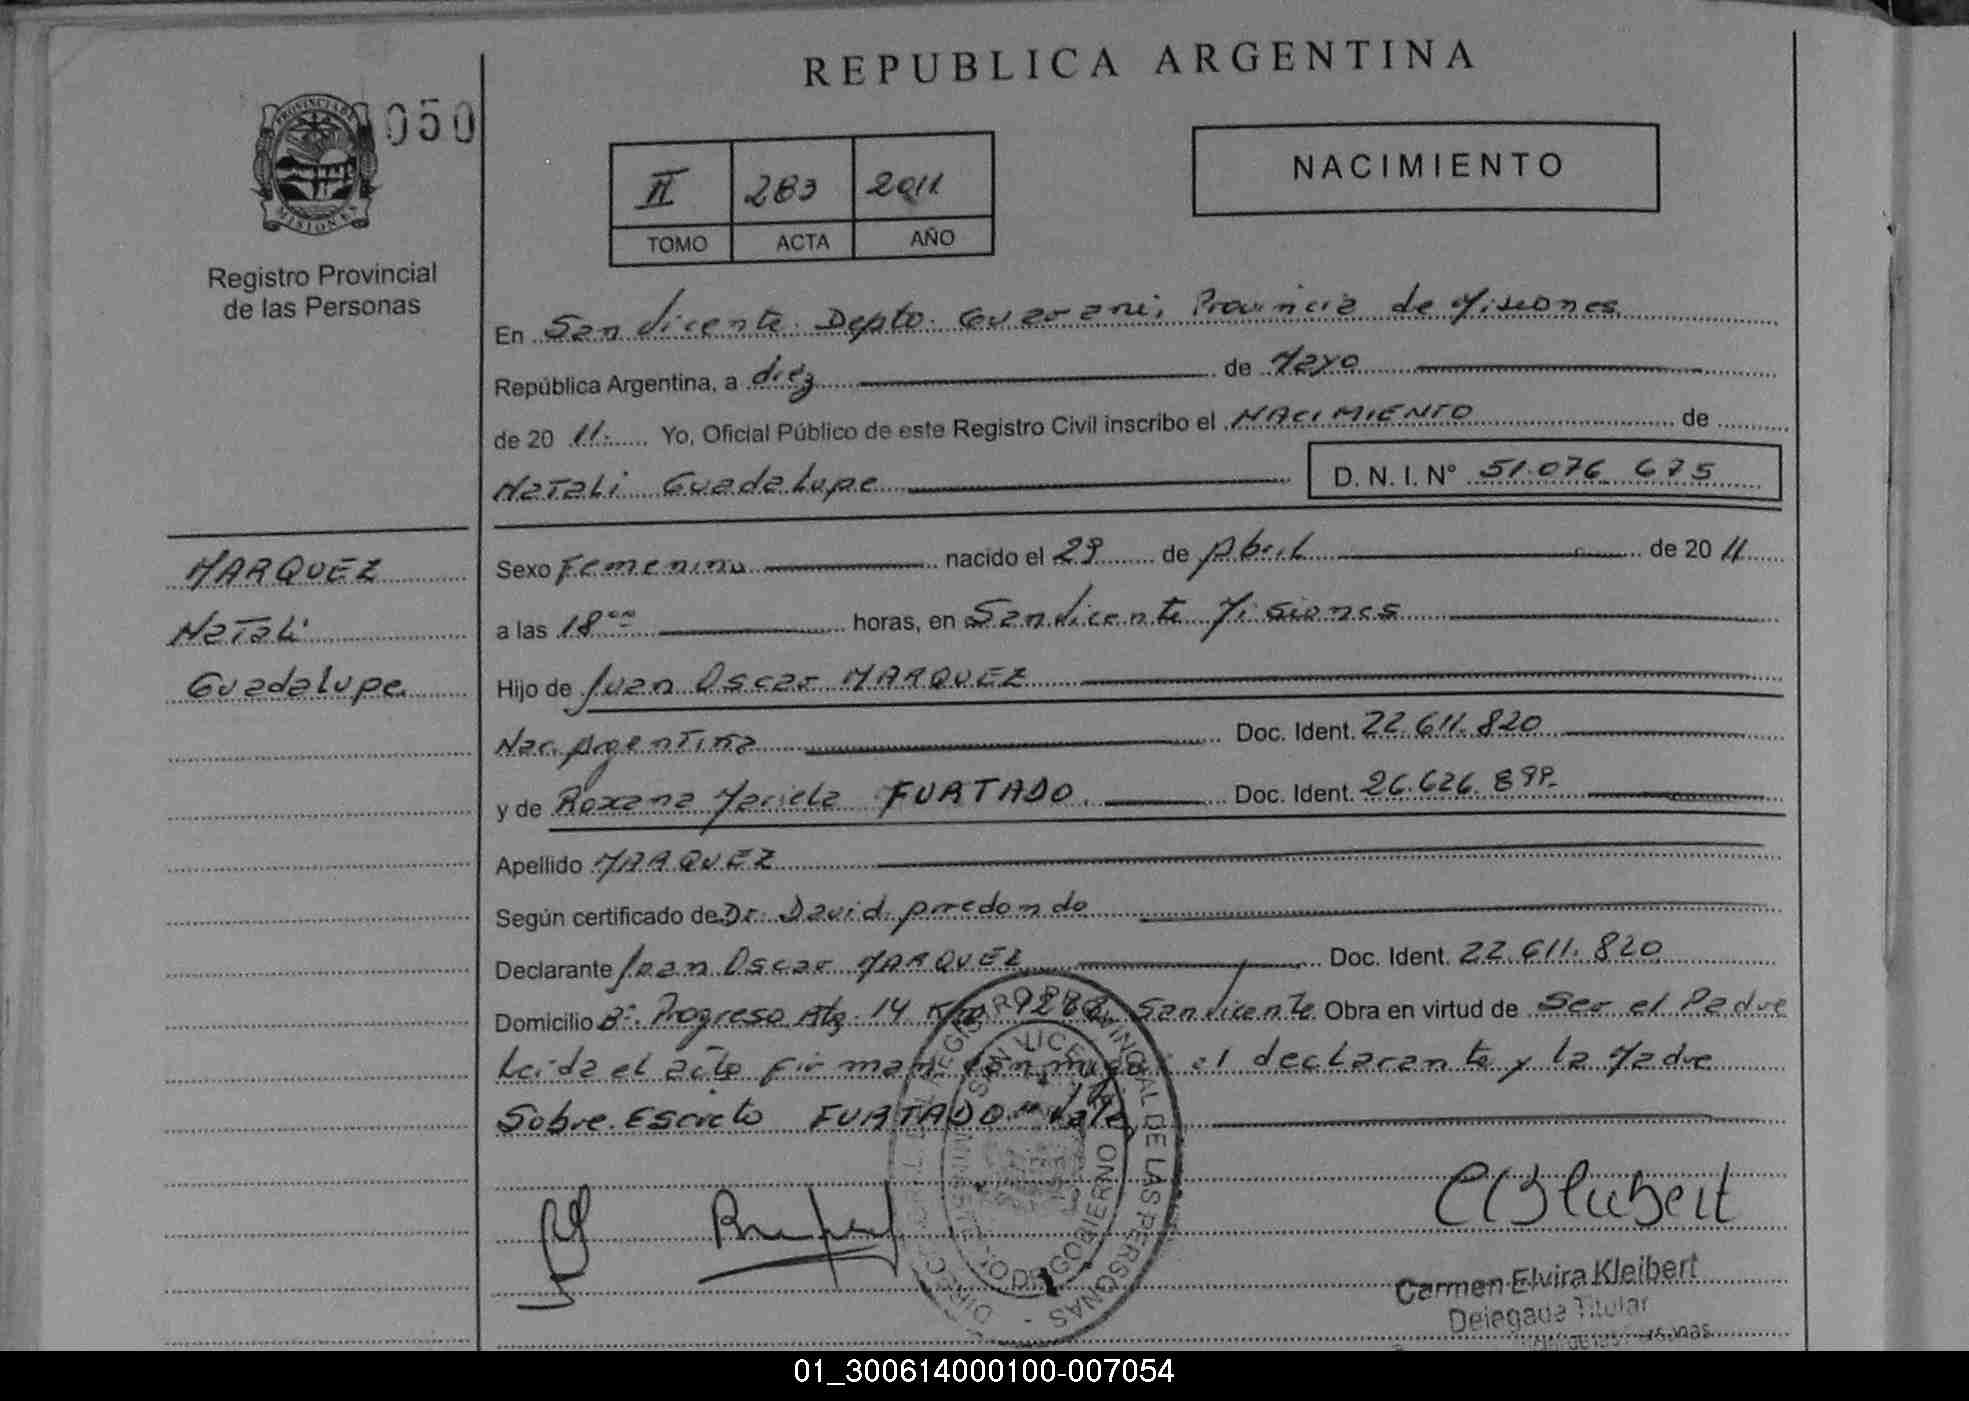 REPUBLICA ARGENTINA
050
PROVINCIA DE
MISIONES
Registro Provincial
de las Personas
II 283 2011
TOMO ACTA AÑO
NACIMIENTO
En San Vicente Depto. Guaraní, Provincia de Misiones
República Argentina, a diez de Mayo
de 20 11. Yo, Oficial Público de este Registro Civil inscribo el NACIMIENTO de
Natali Guadalupe D. N. I. N° 51.076 675
MARQUEZ
Natali
Guadalupe
Sexo Femenino nacido el 29 de Abril de 20 11
a las 18 00 horas, en San Vicente Misiones
Hijo de Juan Oscar MARQUEZ
Nac. Argentina Doc. Ident. 22.611.820
y de Roxana Mariela FURTADO. Doc. Ident. 26.626.899-
Apellido MARQUEZ
Según certificado de Dr. David Arredondo
Declarante Juan Oscar MARQUEZ Doc. Ident. 22.611.820
Domicilio B°. Progreso Mz. 14 San Vicente Obra en virtud de Ser el Padre
Leida el acta firman conmigo el declarante y la Madre
Sobre Escrito FURTADO" Vale
SAN VICENTE
MINISTERIO DE GOBIERNO
PROVINCIAL DE LAS PERSONAS
Carmen Elvira Kleibert
Delegada Titular
01_300614000100-007054